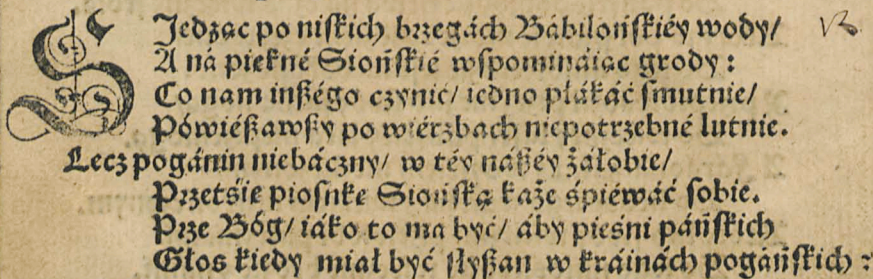 SJedząc po niſkich brzegách Bábilońſkiéy wody/
A ná piękné Siońſkié wſpomináiąc grody:
Co nam inßégo czynić/ iedno płákáć ſmutnie/
Powiéßawßy po wiérzbach niepotrzebné lutnie.
Lecz pogánin niebáczny/ w téy náßéy żáłobie/
Przetśię pioſnkę Siońſką każe śpiéwáć ſobie.
Prze Bóg/ iáko to ma być/ áby pieśni páńſkich
Głos kiedy miał być ſłyßan w kráinách pogáńſkich: